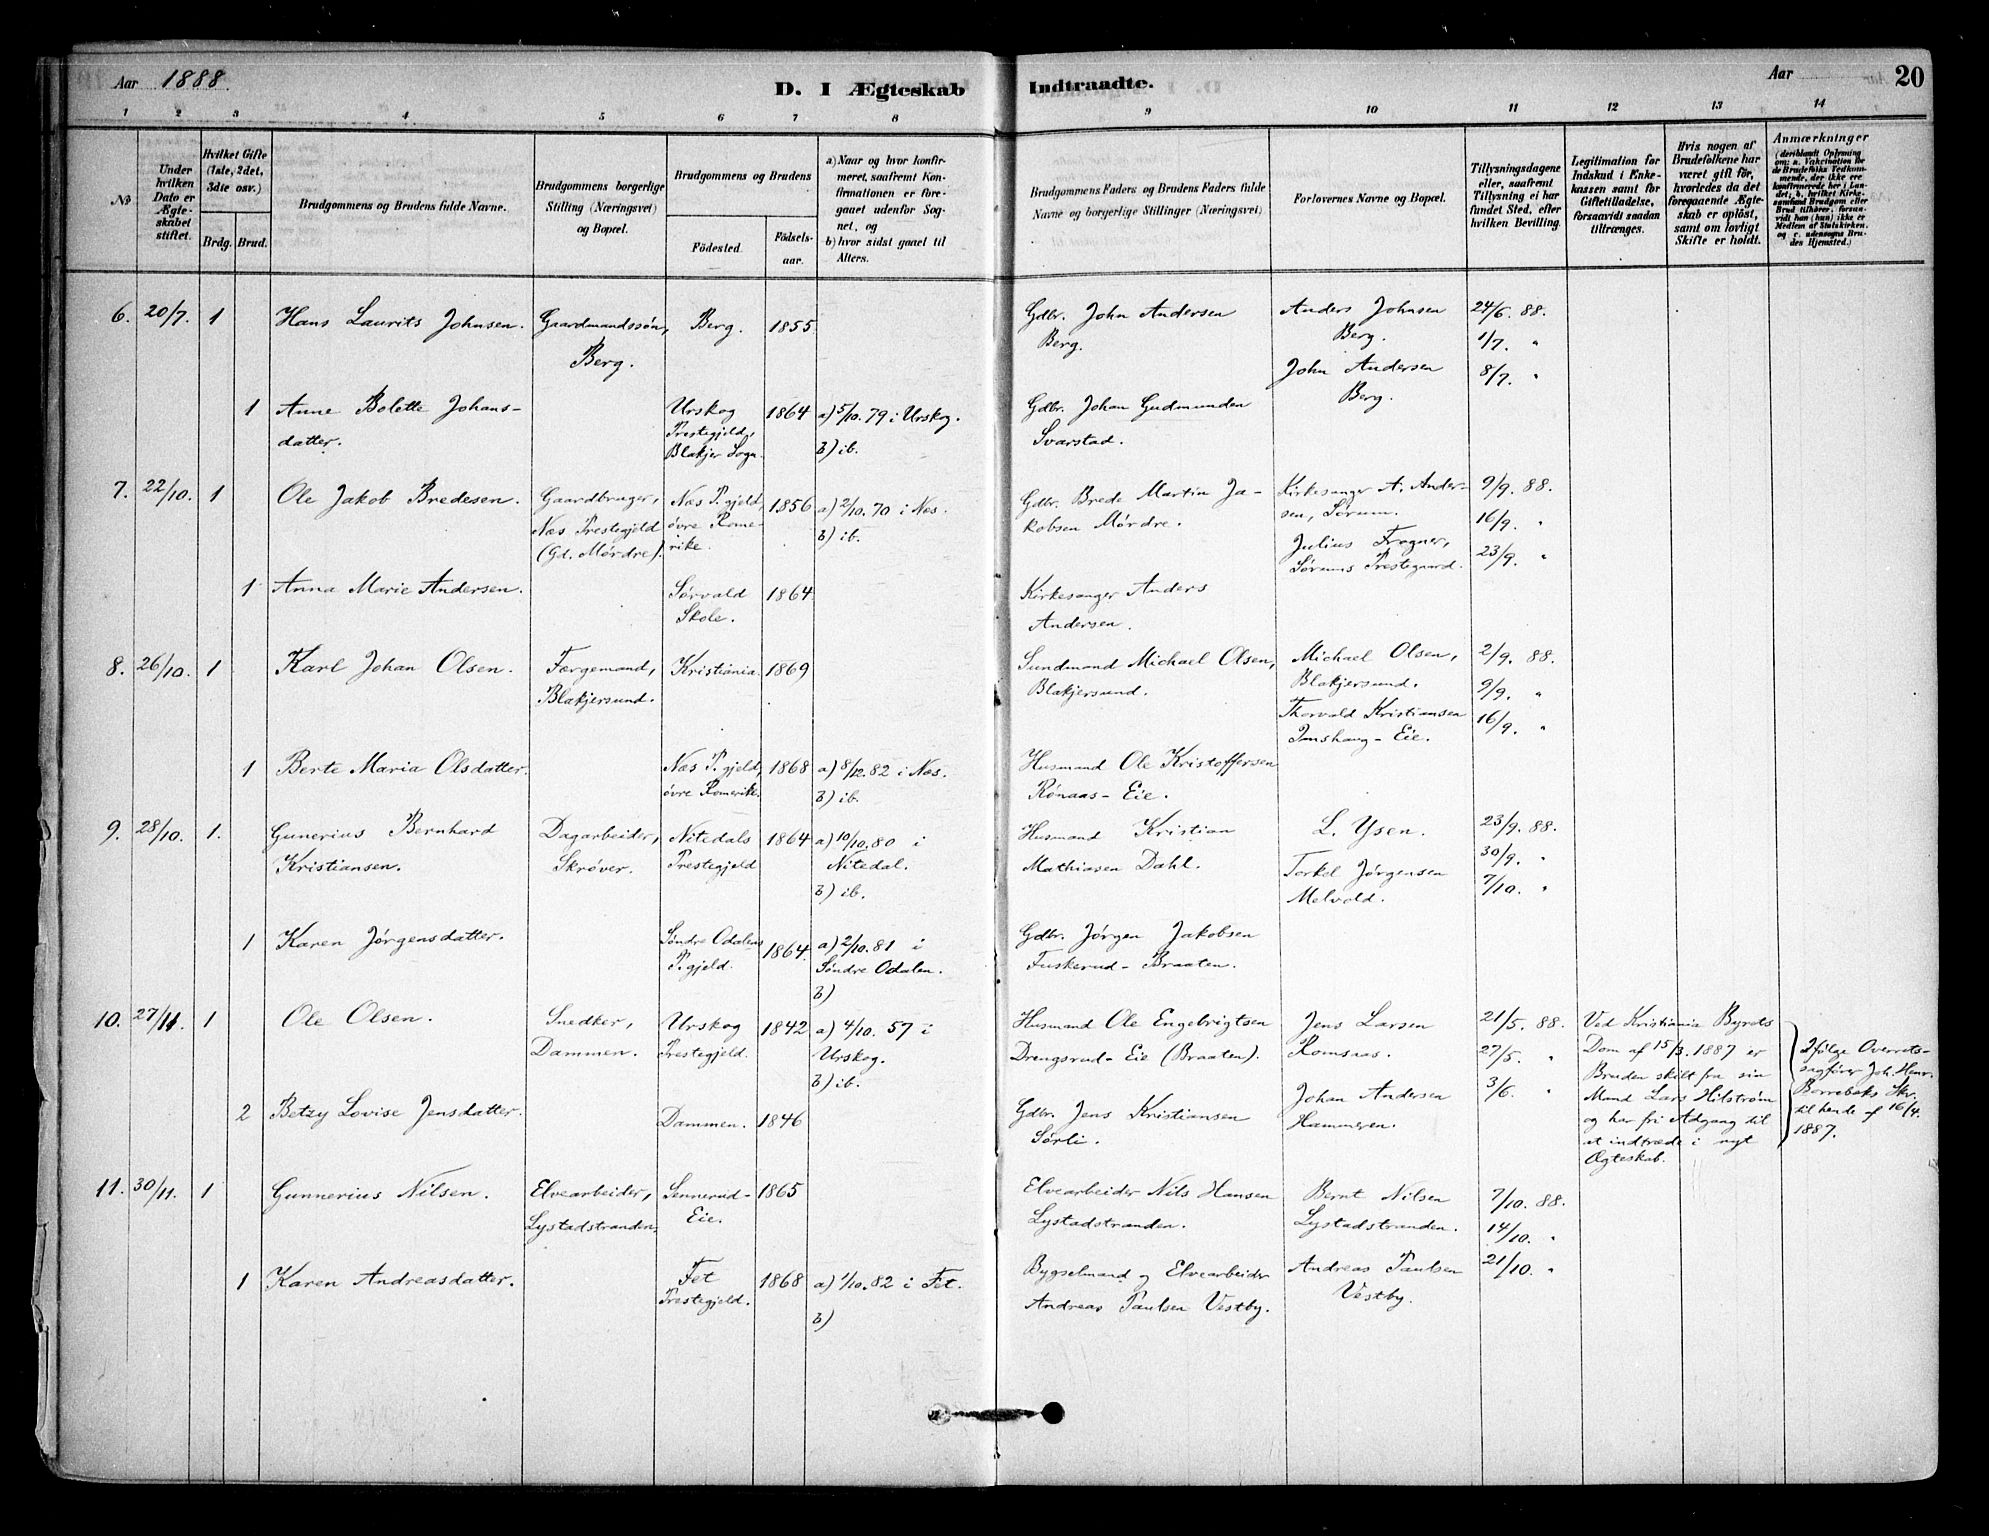 Aar 1888.
D. I Ægteskab Indtraadte.
Aar
20
1 2 3 4 5 6 7 8 9 10 11 12 13 14
№
Under
hvilken
Dato er
Ægte-
skabet
stiftet.
Hvilket Gifte
(1ste, 2det,
3die osv.)
Brdg. Brud.
Brudgommens og Brudens fulde Navne.
Brudgommens borgerlige
Stilling (Næringsvei)
og Bopæl.
Brudgommens og Brudens
Födested.
Födsels-
aar.
a) Naar og hvor konfir-
meret, saafremt Kon-
firmationen er fore-
gaaet udenfor Sog-
net, og
b) hvor sidst gaaet til
Alters.
Brudgommens Faders og Brudens Faders fulde
Navne og borgerlige Stillinger (Næringsvei)
Forlovernes Navne og Bopæl.
Tillysningsdagene
eller, saafremt
Tillysning ei har
fundet Sted, efter
hvilken Bevilling.
Legitimation for
Indskud i Enke-
kassen samt for
Giftetilladelse,
forsaavidt saadan
tiltrænges.
Hvis nogen af
Brudefolkene har
været gift för,
hvorledes da det
foregaaende Ægte-
skab er oplöst,
samt om lovligt
Skifte er holdt.
Anmærkninger
(deriblandt Oplysning
om: a. Vakcination for
de Brudefolks Vedkom-
mende, der ikke ere
konfirmerede her i Lan-
det, b. hvilket Kirke-
samfund Brudgom eller
Brud tilhörer, forsaa-
vidt han (hun) ikke er
Medlem af Statskirken,
og c. udensogns Bru-
des Hjemsted.)
6. 20/7. 1 Hans Laurits Johnsen. Gaardmandssøn, Berg. 1855.
Berg.
Gdbr. John Andersen
Berg.
Anders Johnsen
Berg.
John Andersen
Berg.
24/6. 88.
1/7. "
8/7. "
1 Anne Bolette Johans-
datter.
Urskog
Prestegjeld,
Blakjer Sogn.
1864
a) 5/10. 79 i Urskog.
b) ib.
Gdbr. Johan Gudmunden
Svarstad.
7. 22/10. 1 Ole Jakob Bredesen.
Gaardbruger,
Næs Prestegjeld
(Gd. Mørdre).
Næs P.gjeld,
øvre Rome-
rike.
1856
a) 2/10. 70 i Næs.
b) ib.
Gdbr. Brede Martin Ja-
kobsen Mørdre.
Kirkesanger A. Ander-
sen, Sørum.
Julius Frogner,
Sørums Prestegaard.
9/9. 88.
16/9. "
23/9. "
1 Anna Marie Andersen.
Sørvald
Skole.
1864
Kirkesanger Anders
Andersen.
8. 26/10. 1 Karl Johan Olsen.
Færgemand,
Blakjersund.
Kristiania. 1869
Sundmand Michael Olsen,
Blakjersund.
Michael Olsen,
Blakjersund.
Thorvald Kristiansen
Imshaug-Eie.
2/9. 88.
9/9. "
16/9. "
1 Berte Maria Olsdatter.
Næs P.gjeld,
øvre Romerike.
1868
a) 8/12. 82 i Næs.
b) ib.
Husmand Ole Kristoffersen
Rønaas-Eie.
9. 28/10. 1. Gunerius Bernhard
Kristiansen.
Dagarbeider,
Skrøver.
Nitedals
Prestegjeld
1864
a) 10/10. 80 i
Nitedal.
b) ib.
Husmand Kristian
Mathiasen Dahl.
L. Ysen.
Torkel Jørgensen
Melvold.
23/9. 88.
30/9. "
7/10. "
1 Karen Jørgensdatter.
Søndre Odalens
P.gjeld.
1864
a) 2/10. 81 i
Søndre Odalen.
b)
Gdbr. Jørgen Jakobsen
Fuskerud-Braaten.
10. 27/11. 1 Ole Olsen.
Snedker,
Dammen.
Urskog
Prestegjeld.
1842
a) 4/10. 57 i
Urskog.
b) ib.
Husmand Ole Engebrigtsen
Drengsrud-Eie (Braaten).
Jens Larsen
Romsaas.
Johan Andersen
Hammeren.
21/5. 88.
27/5. "
3/6. "
Ved Kristiania Byrets
Dom af 15/3. 1887 er
Bruden skilt fra sin
Mand Lars Hilstrøm
og har fri Adgang til
at indtræde i nyt
Ægteskab.
Ifølge Overrets-
sagfører Joh. Henr.
Borrebæks Skr.
til hende af 16/4.
1887.
2 Betzy Lovise Jensdatter.
Dammen. 1846
Gdbr. Jens Kristiansen
Sørli.
11. 30/11. 1 Gunnerius Nilsen.
Elvearbeider,
Lystadstranden.
Sennerud-
Eie.
1865
Elvearbeider Nils Hansen
Lystadstranden.
Bernt Nilsen
Lystadstranden.
Andreas Paulsen
Vestby.
7/10. 88.
14/10. "
21/10. "
1 Karen Andreasdatter.
Fet
Prestegjeld.
1868
a) 1/10. 82 i Fet.
b)
Bygselmand og Elvearbeider
Andreas Paulsen Vestby.